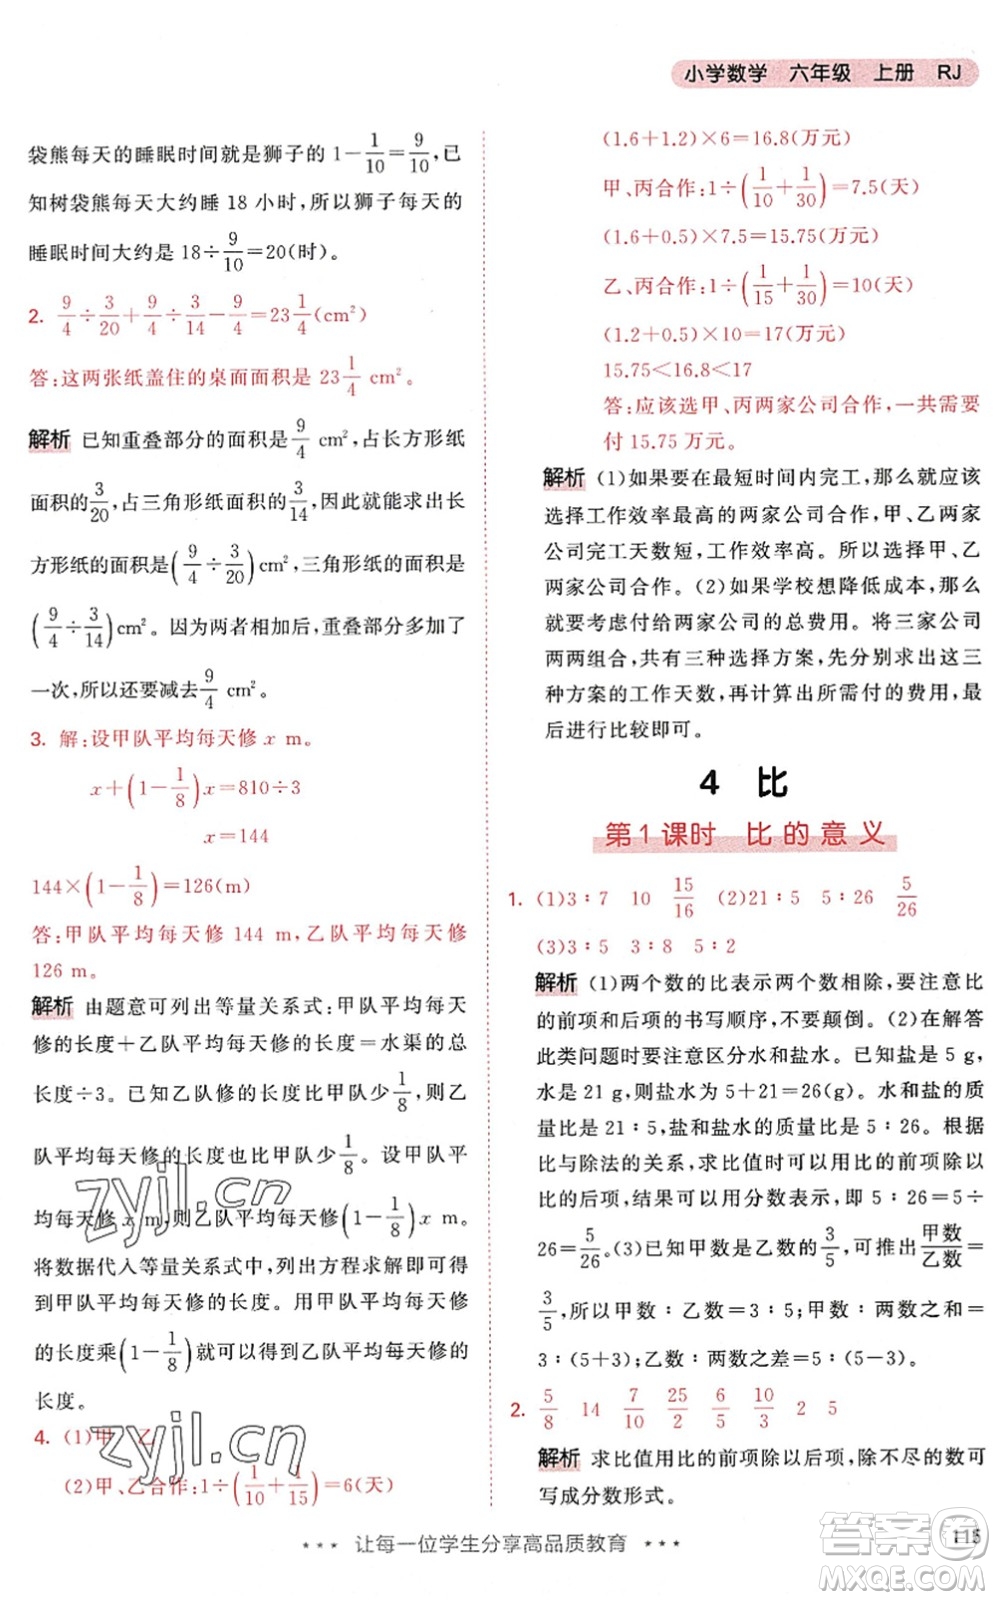 小学数学 六年级 上册 RJ
袋熊每天的睡眠时间就是狮子的 1－1/10＝9/10,已
知树袋熊每天大约睡 18 小时,所以狮子每天的
睡眠时间大约是 18÷9/10＝20(时)。
2. 9/4÷3/20＋9/4÷3/14－9/4＝23 1/4(cm²)
答:这两张纸盖住的桌面面积是 23 1/4 cm²。
解析 已知重叠部分的面积是9/4 cm²,占长方形纸
面积的3/20,占三角形纸面积的3/14,因此求出长
方形纸的面积是(9/4÷3/20)cm²,三角形纸的面积是
(9/4÷3/14)cm²。因为两者相加后,重叠部分多加了
一次,所以还要减去9/4 cm²。
3. 解:设甲队平均每天修 x m。
x＋(1－1/8)x＝810÷3
x＝144
144×(1－1/8)＝126(m)
答:甲队平均每天修 144 m,乙队平均每天修
126 m。
解析 由题意可列出等量关系式:甲队平均每天
修的长度＋乙队平均每天修的长度＝水渠的总
长度÷3。已知乙队修的长度比甲队少1/8,则乙
队平均每天修的长度也比甲队少1/8。设甲队平
均每天修 x m,则乙队平均每天修(1－1/8)x m。
将数据代入等量关系式中,列出方程求解即可得
到甲队平均每天修的长度。用甲队平均每天修
的长度乘(1－1/8)就可以得到乙队平均每天修的
长度。
4. (1)甲 乙
(2)甲、乙合作:1÷(1/10＋1/15)＝6(天)
(1.6＋1.2)×6＝16.8(万元)
甲、丙合作:1÷(1/10＋1/30)＝7.5(天)
(1.6＋0.5)×7.5＝15.75(万元)
乙、丙合作:1÷(1/15＋1/30)＝10(天)
(1.2＋0.5)×10＝17(万元)
15.75＜16.8＜17
答:应该选甲、丙两家公司合作,一共需要
付 15.75 万元。
解析 (1)如果要在最短时间内完工,那么就应该
选择工作效率最高的两家公司合作,甲、乙两家
公司完工天数短,工作效率高。所以选择甲、乙
两家公司合作。(2)如果学校想降低成本,那么
就要考虑付给两家公司的总费用。将三家公司
两两组合,共有三种选择方案,先分别求出这三
种方案的工作天数,再计算出所需付的费用,最
后进行比较即可。
4 比
第1课时 比的意义
1. (1)3∶7 10 15/16 (2)21∶5 5∶26 5/26
(3)3∶5 3∶8 5∶2
解析 (1)两个数的比表示两个数相除,要注意比
的前项和后项的书写顺序,不要颠倒。(2)在解答
此类问题时要注意区分水和盐水。已知盐是 5 g,
水是 21 g,则盐水为 5＋21＝26(g)。水和盐的质
量比是 21∶5,盐和盐水的质量比是 5∶26。根据
比与除法的关系,求比值时可以用比的前项除以
比的后项,结果可以用分数表示,即 5∶26＝5÷
26＝5/26。(3)甲数是乙数的3/5,可推出甲数/乙数＝
3/5,所以甲数∶乙数＝3∶5;甲数∶两数之和＝
3∶(5＋3);乙数∶两数之差＝5∶(5－3)。
2. 5/8 14 7/10 25/2 6/5 10/3 2 5
解析 求比值用比的前项除以后项,除不尽的数可
写成分数形式。
★★★ 让每一位学生分享高品质教育 ★★★
115
zyjl.cn
zyjl.cn
答案圈
MXQE.COM